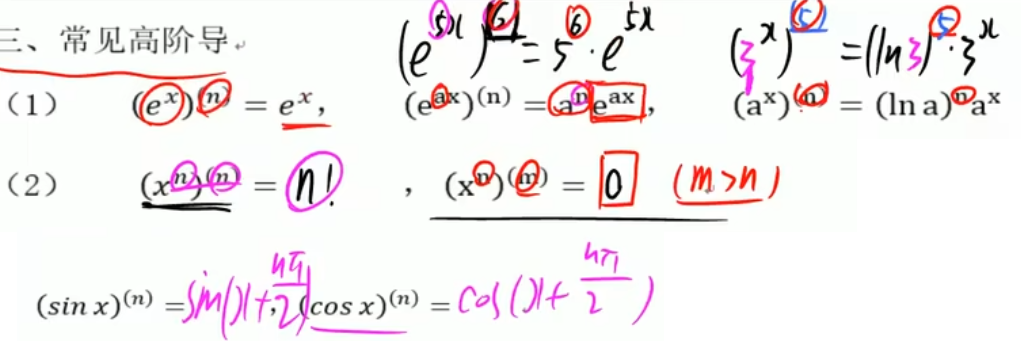 三、常见高阶导 (e^{5x})^{(6)} = 5^6 · e^{5x} (3^x)^{(5)} = (ln 3)^5 · 3^x
(1) (e^x)^{(n)} = e^x, (e^{ax})^{(n)} = a^n e^{ax}, (a^x)^{(n)} = (ln a)^n a^x
(2) (x^n)^{(n)} = n! , (x^n)^{(m)} = 0 (m>n)
(sin x)^{(n)} = sin(x+\frac{nπ}{2}), (cos x)^{(n)} = cos(x+\frac{nπ}{2})